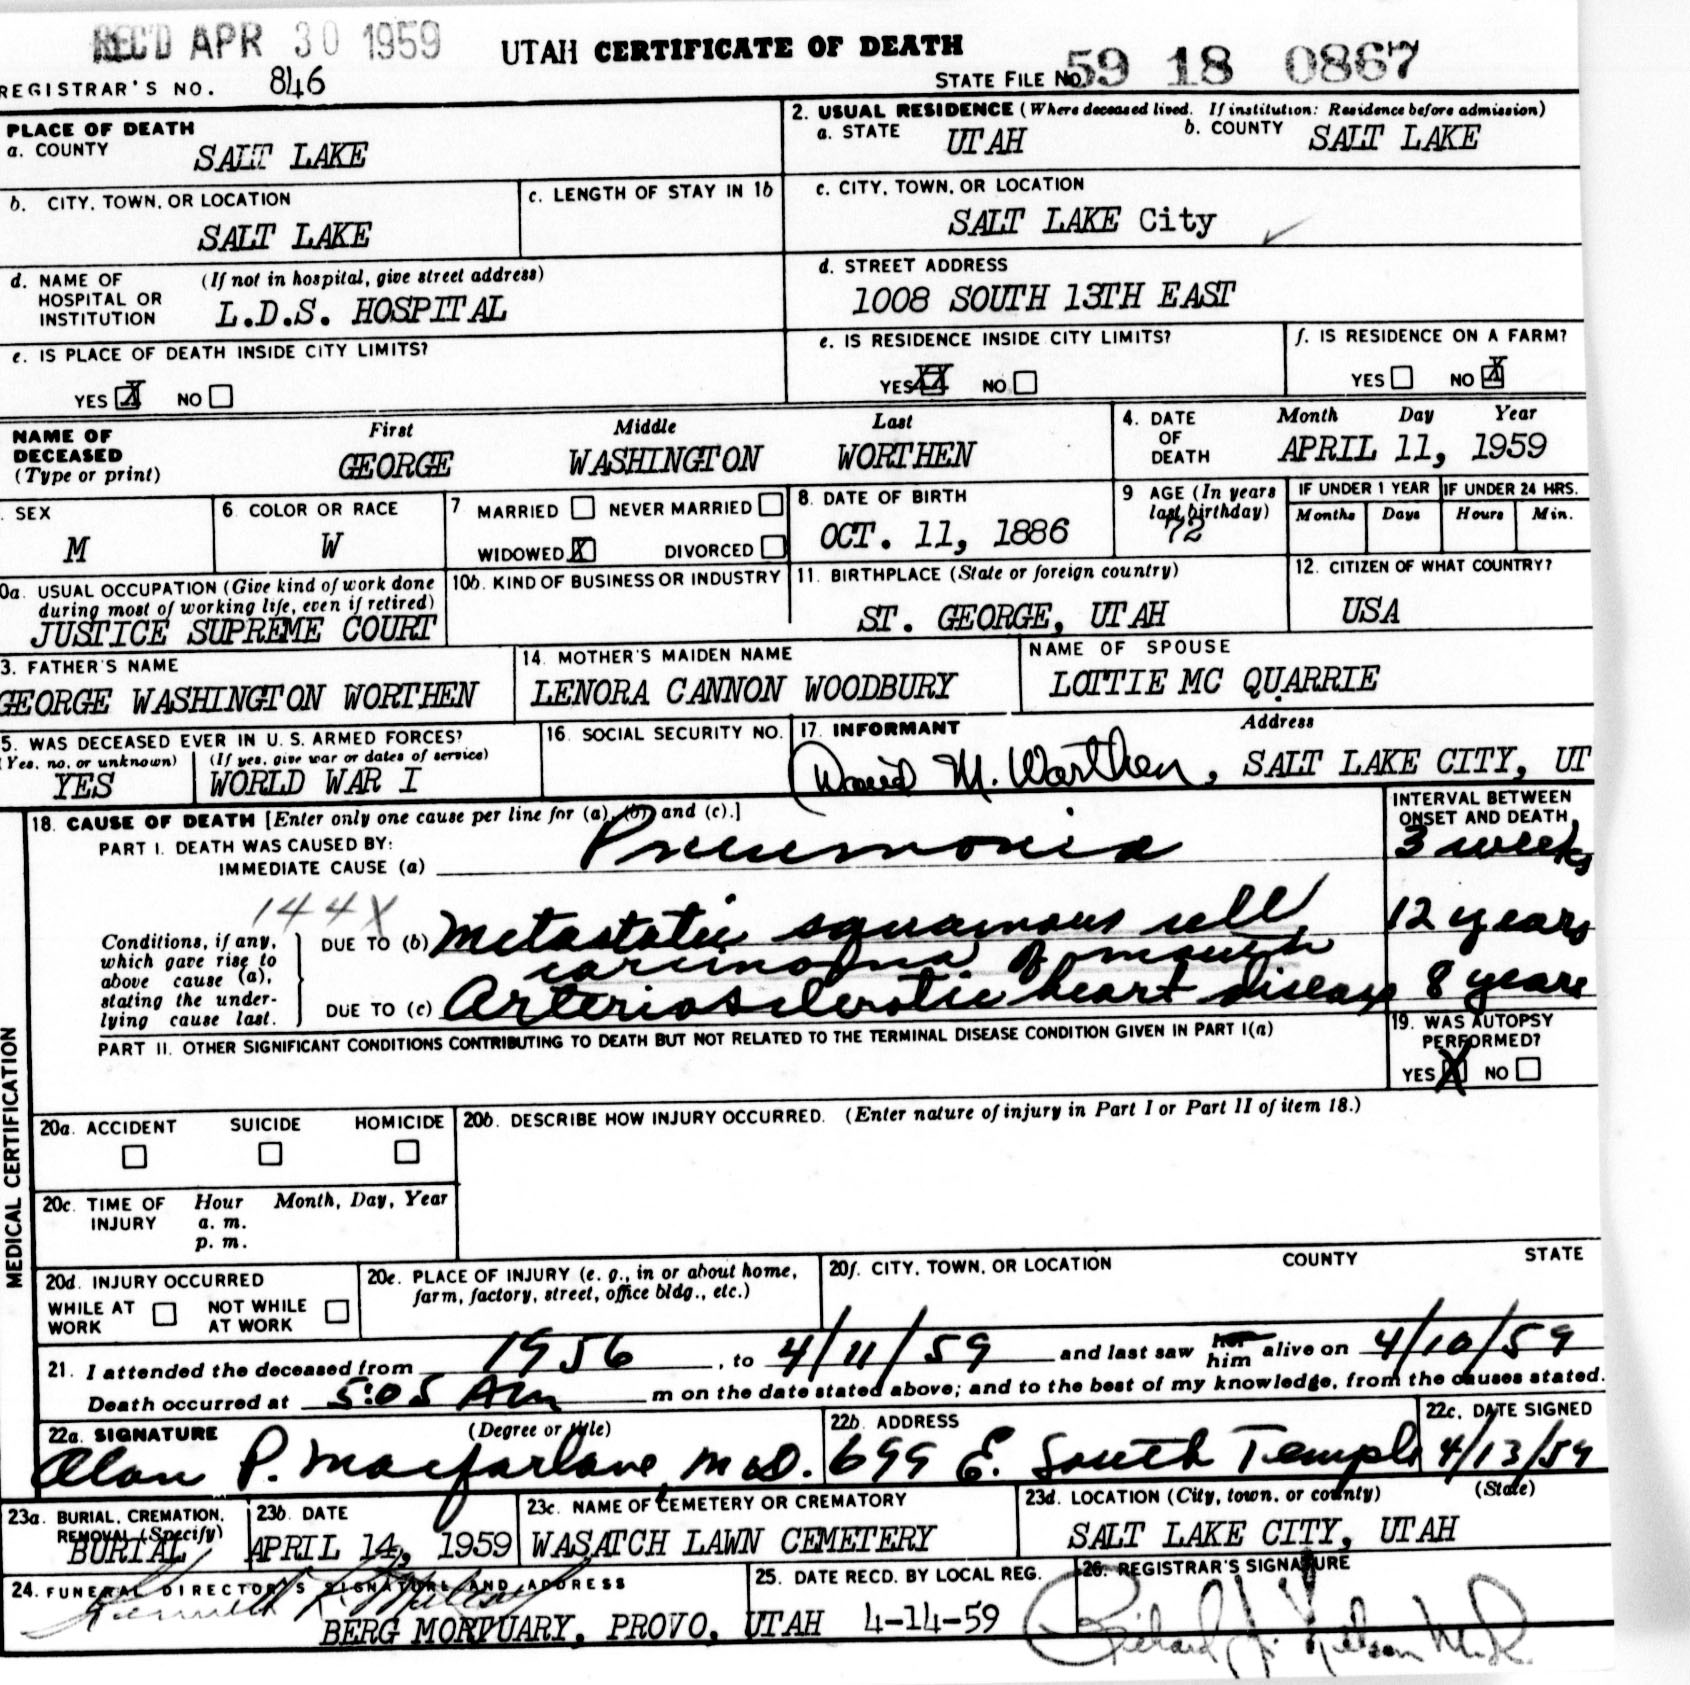 REC'D APR 30 1959
UTAH CERTIFICATE OF DEATH
STATE FILE No. 59 18 0867
REGISTRAR'S NO. 846
PLACE OF DEATH
a. COUNTY
SALT LAKE
2. USUAL RESIDENCE (Where deceased lived. If institution: Residence before admission)
a. STATE UTAH b. COUNTY SALT LAKE
b. CITY, TOWN, OR LOCATION
SALT LAKE
c. LENGTH OF STAY IN 1b
c. CITY, TOWN, OR LOCATION
SALT LAKE City
d. NAME OF HOSPITAL OR INSTITUTION (If not in hospital, give street address)
L.D.S. HOSPITAL
d. STREET ADDRESS
1008 SOUTH 13TH EAST
e. IS PLACE OF DEATH INSIDE CITY LIMITS?
YES X NO
e. IS RESIDENCE INSIDE CITY LIMITS?
YES XX NO
f. IS RESIDENCE ON A FARM?
YES NO X
NAME OF DECEASED (Type or print)
First Middle Last
GEORGE WASHINGTON WORTHEN
4. DATE OF DEATH
Month Day Year
APRIL 11, 1959
. SEX
M
6. COLOR OR RACE
W
7 MARRIED NEVER MARRIED
WIDOWED X DIVORCED
8. DATE OF BIRTH
OCT. 11, 1886
9 AGE (In years last birthday)
72
IF UNDER 1 YEAR IF UNDER 24 HRS.
Months Days Hours Min.
0a. USUAL OCCUPATION (Give kind of work done during most of working life, even if retired)
JUSTICE SUPREME COURT
10b. KIND OF BUSINESS OR INDUSTRY
11. BIRTHPLACE (State or foreign country)
ST. GEORGE, UTAH
12. CITIZEN OF WHAT COUNTRY?
USA
3. FATHER'S NAME
GEORGE WASHINGTON WORTHEN
14. MOTHER'S MAIDEN NAME
LENORA CANNON WOODBURY
NAME OF SPOUSE
LOTTIE MC QUARRIE
5. WAS DECEASED EVER IN U. S. ARMED FORCES?
(Yes, no, or unknown) (If yes, give war or dates of service)
YES WORLD WAR I
16. SOCIAL SECURITY NO.
17. INFORMANT Address
David M. Worthen, SALT LAKE CITY, UT
18. CAUSE OF DEATH [Enter only one cause per line for (a), (b) and (c).]
INTERVAL BETWEEN ONSET AND DEATH
PART I. DEATH WAS CAUSED BY:
IMMEDIATE CAUSE (a) Pneumonia 3 weeks
144X
Conditions, if any, which gave rise to above cause (a), stating the underlying cause last.
DUE TO (b) Metastatic squamous cell 12 years
carcinoma of mouth
DUE TO (c) Arteriosclerotic heart disease 8 years
PART II. OTHER SIGNIFICANT CONDITIONS CONTRIBUTING TO DEATH BUT NOT RELATED TO THE TERMINAL DISEASE CONDITION GIVEN IN PART I(a)
19. WAS AUTOPSY PERFORMED?
YES X NO
MEDICAL CERTIFICATION
20a. ACCIDENT SUICIDE HOMICIDE
20b. DESCRIBE HOW INJURY OCCURRED. (Enter nature of injury in Part I or Part II of item 18.)
20c. TIME OF INJURY Hour Month, Day, Year
a. m.
p. m.
20d. INJURY OCCURRED
WHILE AT WORK NOT WHILE AT WORK
20e. PLACE OF INJURY (e. g., in or about home, farm, factory, street, office bldg., etc.)
20f. CITY, TOWN, OR LOCATION COUNTY STATE
21. I attended the deceased from 1956, to 4/11/59 and last saw her him alive on 4/10/59
Death occurred at 5:05 Am m on the date stated above; and to the best of my knowledge, from the causes stated.
22a. SIGNATURE (Degree or title)
Alan P. Macfarlane, M.D.
22b. ADDRESS
699 E. South Temple
22c. DATE SIGNED
4/13/59
23a. BURIAL, CREMATION, REMOVAL (Specify)
BURIAL
23b. DATE
APRIL 14, 1959
23c. NAME OF CEMETERY OR CREMATORY
WASATCH LAWN CEMETERY
23d. LOCATION (City, town, or county) (State)
SALT LAKE CITY, UTAH
24. FUNERAL DIRECTOR'S SIGNATURE AND ADDRESS
BERG MORTUARY, PROVO, UTAH
25. DATE RECD. BY LOCAL REG.
4-14-59
26. REGISTRAR'S SIGNATURE
Richard J. Nelson M.D.